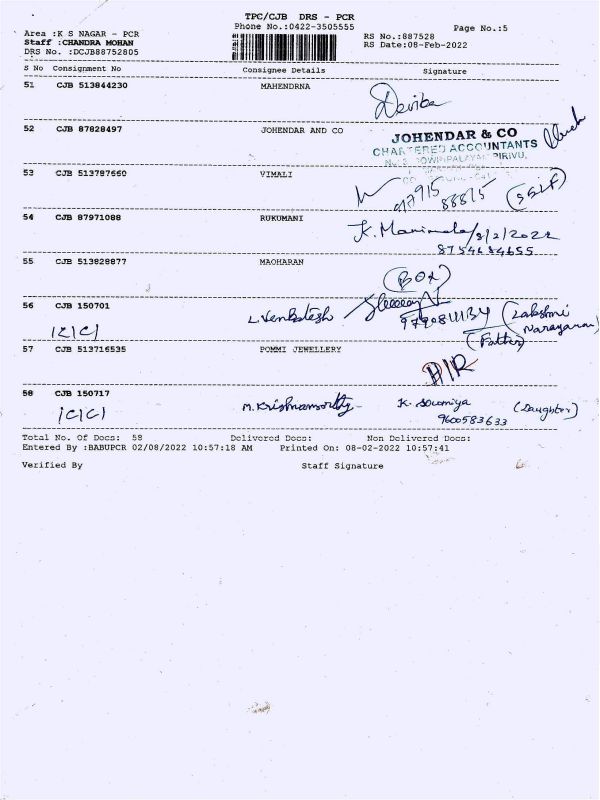 TPC/CJB DRS - PCR
Phone No.:0422-3505555
Page No.:5
Area :K S NAGAR - PCR
Staff :CHANDRA MOHAN
DRS No. :DCJB88752805
RS No.:887528
RS Date:08-Feb-2022
S No Consignment No Consignee Details Signature
51 CJB 513844230 MAHENDRNA
52 CJB 87828497 JOHENDAR AND CO
JOHENDAR & CO
CHARTERED ACCOUNTANTS
53 CJB 513787660 VIMALI
97915
88875 (SELF)
54 CJB 87971088 RUKUMANI
K. Manimala 8/2/2022
8754684655
55 CJB 513828877 MAOHARAN
(BOX)
56 CJB 150701 L. Venkatesh (Lakshmi
ICICI Narayanan)
(Father)
57 CJB 513716535 POMMI JEWELLERY
58 CJB 150717 M. Krishnamorthy K. Sowmiya (Daughter)
ICICI 9600583633
Total No. Of Docs: 58 Delivered Docs: Non Delivered Docs:
Entered By :BABUPCR 02/08/2022 10:57:18 AM Printed On: 08-02-2022 10:57:41
Verified By Staff Signature